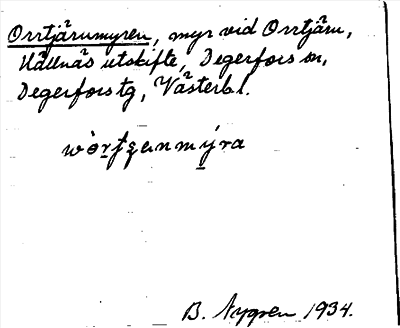 Orrtjärnmyren, myr vid Orrtjärn,
Hällnäs utskifte, Degerfors sn,
Degerfors tg, Västerb l.
B. Nygren 1934.